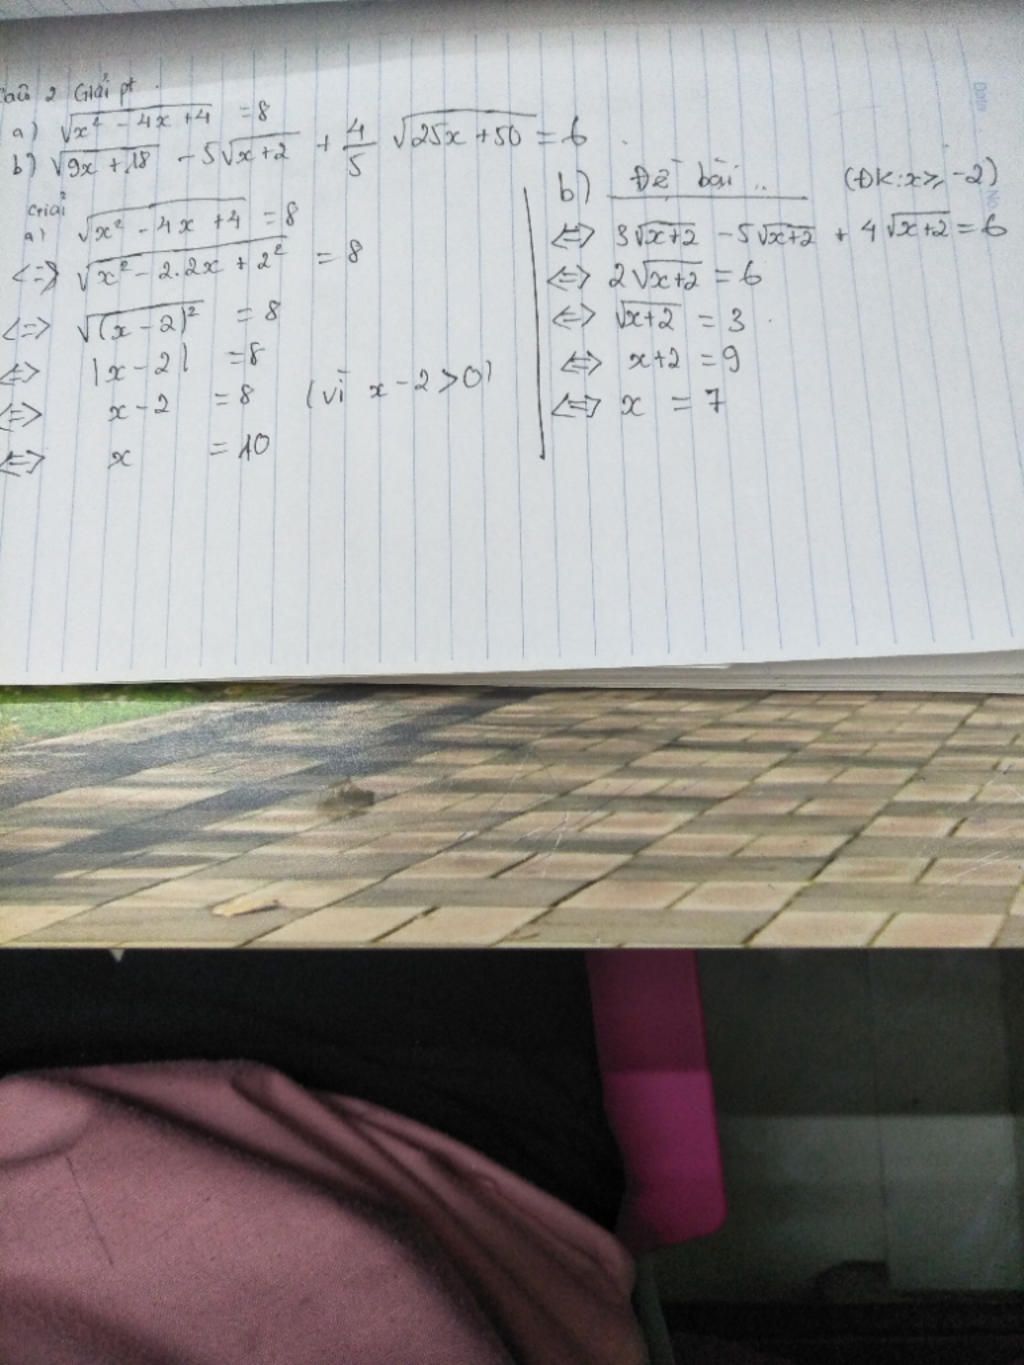 Câu 2 Giải pt.
a) √(x² - 4x + 4) = 8
b) √(9x + 18) - 5√(x+2) + 4/5 √(25x + 50) = 6
Giải
a) √(x² - 4x + 4) = 8
<=> √(x² - 2.2x + 2²) = 8
<=> √((x - 2)²) = 8
<=> |x - 2| = 8
<=> x - 2 = 8 (vì x - 2 > 0)
<=> x = 10
b) Đề bài .. (ĐK: x ≥ -2)
<=> 3√(x+2) - 5√(x+2) + 4√(x+2) = 6
<=> 2√(x+2) = 6
<=> √(x+2) = 3
<=> x+2 = 9
<=> x = 7
Date
No